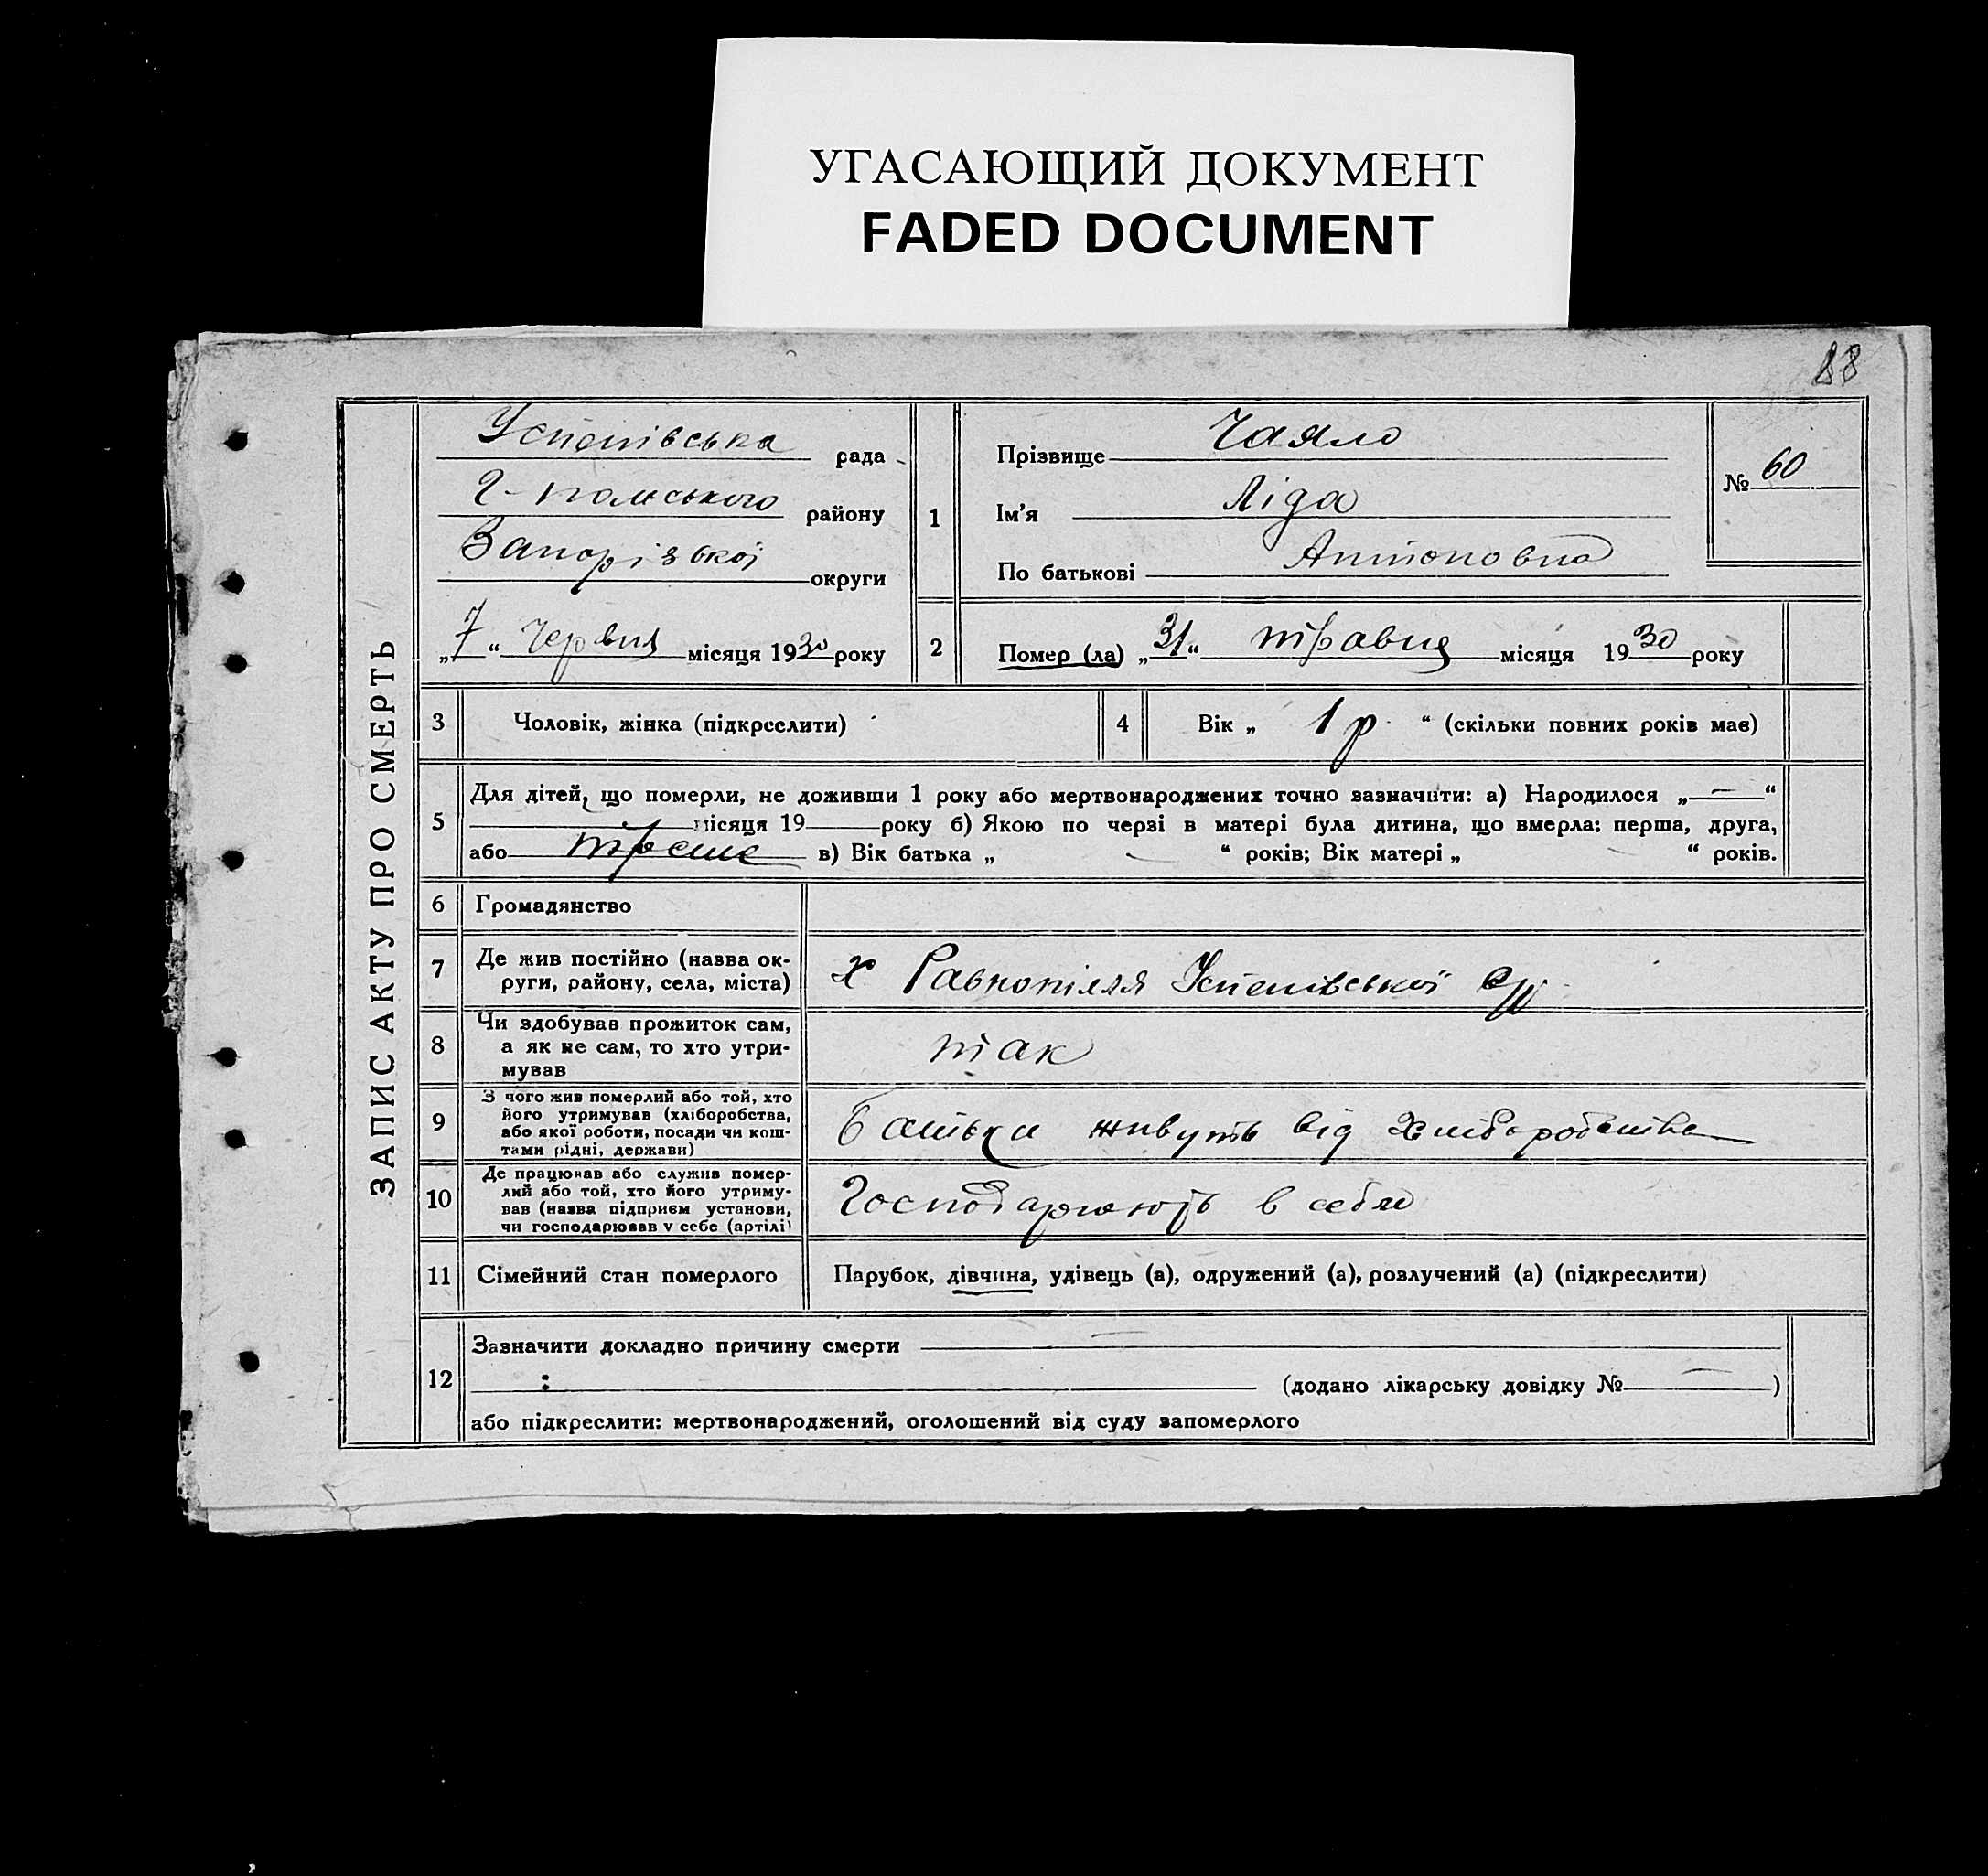 УГАСАЮЩИЙ ДОКУМЕНТ
FADED DOCUMENT
88
ЗАПИС АКТУ ПРО СМЕРТЬ
Успенівська рада
Г-польського району
Запорізької округи
„7“ Червня місяця 1930 року
1
Прізвище Чаяло
Ім'я Ліда
По батькові Антоновна
№ 60
2
Помер (ла) „31“ травня місяця 1930 року
3
Чоловік, жінка (підкреслити)
4
Вік „ 1 р. “ (скільки повних років має)
5
Для дітей, що померли, не доживши 1 року або мертвонароджених точно зазначити: а) Народилося „ — “
місяця 19 року б) Якою по черзі в матері була дитина, що вмерла: перша, друга,
або третє в) Вік батька „ — “ років; Вік матері „ — “ років.
6
Громадянство
7
Де жив постійно (назва ок-
руги, району, села, міста)
х Равнопілля Успенівської с/р
8
Чи здобував прожиток сам,
а як не сам, то хто утри-
мував
так
9
З чого жив померлий або той, хто
його утримував (хліборобства,
або якої роботи, посади чи кош-
тами рідні, держави)
Батьки живуть від Хліборобства
10
Де працював або служив помер-
лий або той, хто його утриму-
вав (назва підприєм установи,
чи господарював у себе (артілі)
Господарюють в себе
11
Сімейний стан померлого
Парубок, дівчина, удівець (а), одружений (а), розлучений (а) (підкреслити)
12
Зазначити докладно причину смерти —
(додано лікарську довідку № — )
або підкреслити: мертвонароджений, оголошений від суду запомерлого